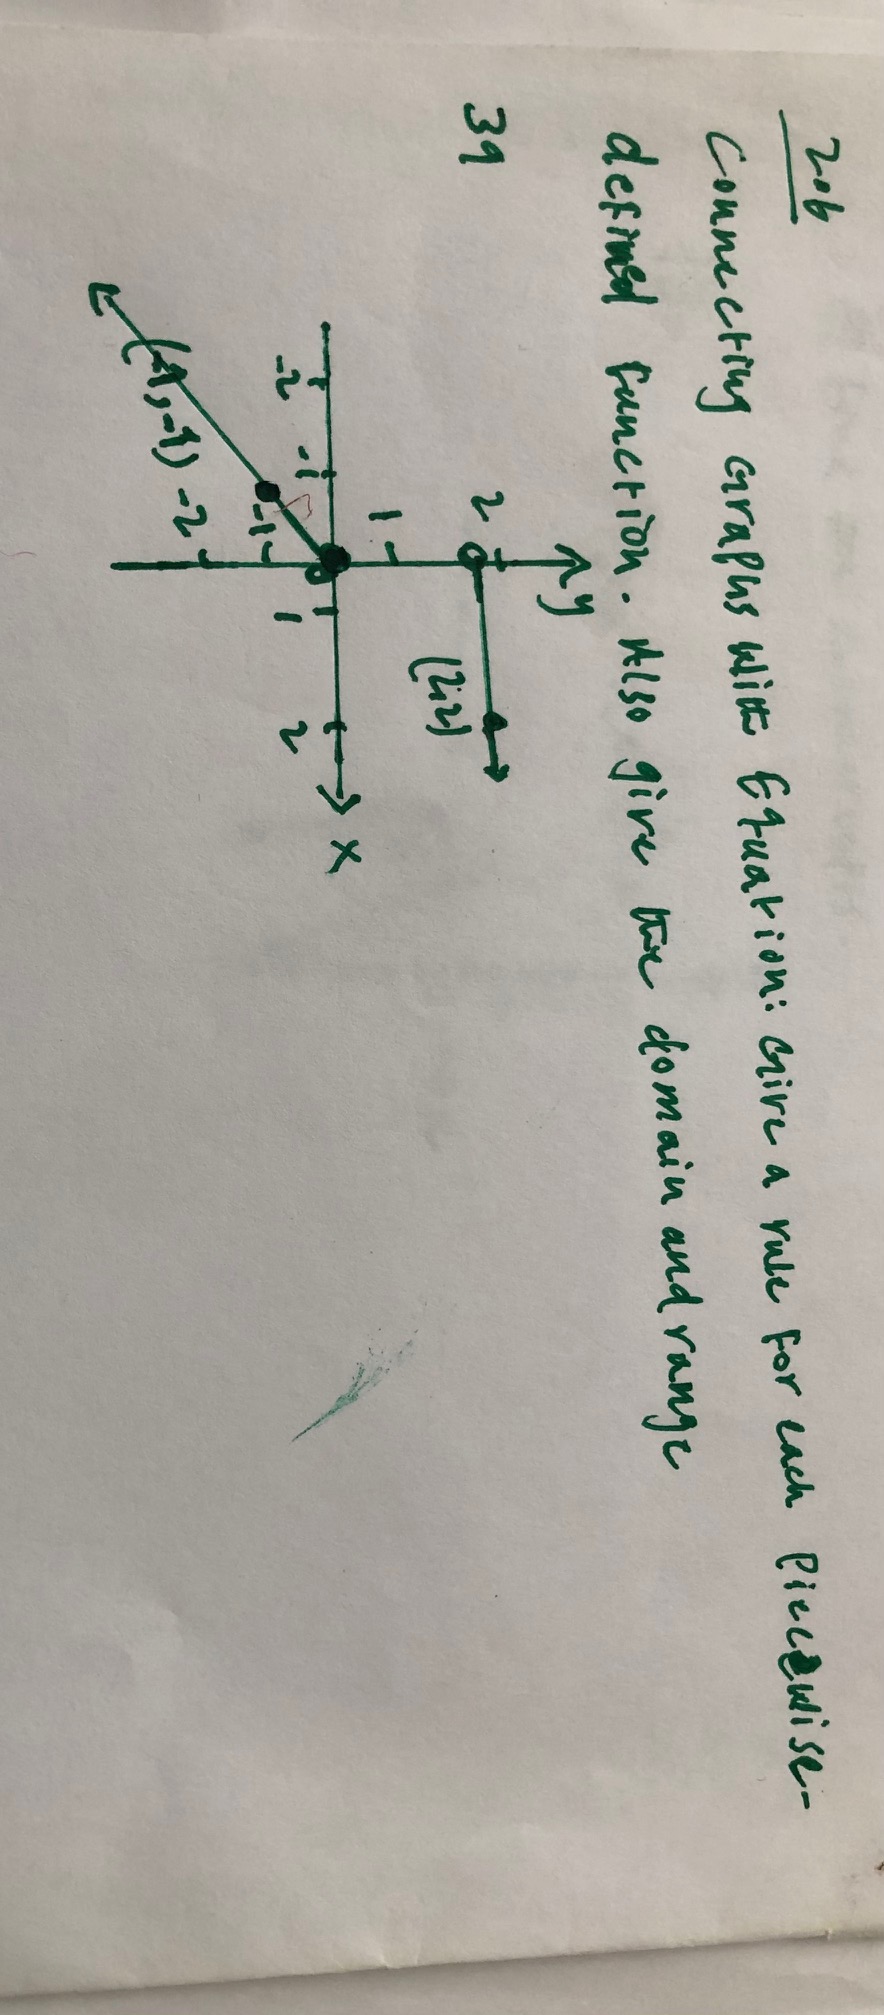 2.6
Connecting Graphs with Equation: Give a rule for each Piecewise-
defined function. Also give the domain and range
39
y
2
(2,2)
1
-2 -1 1 2 x
-1
(-1,-1) -2